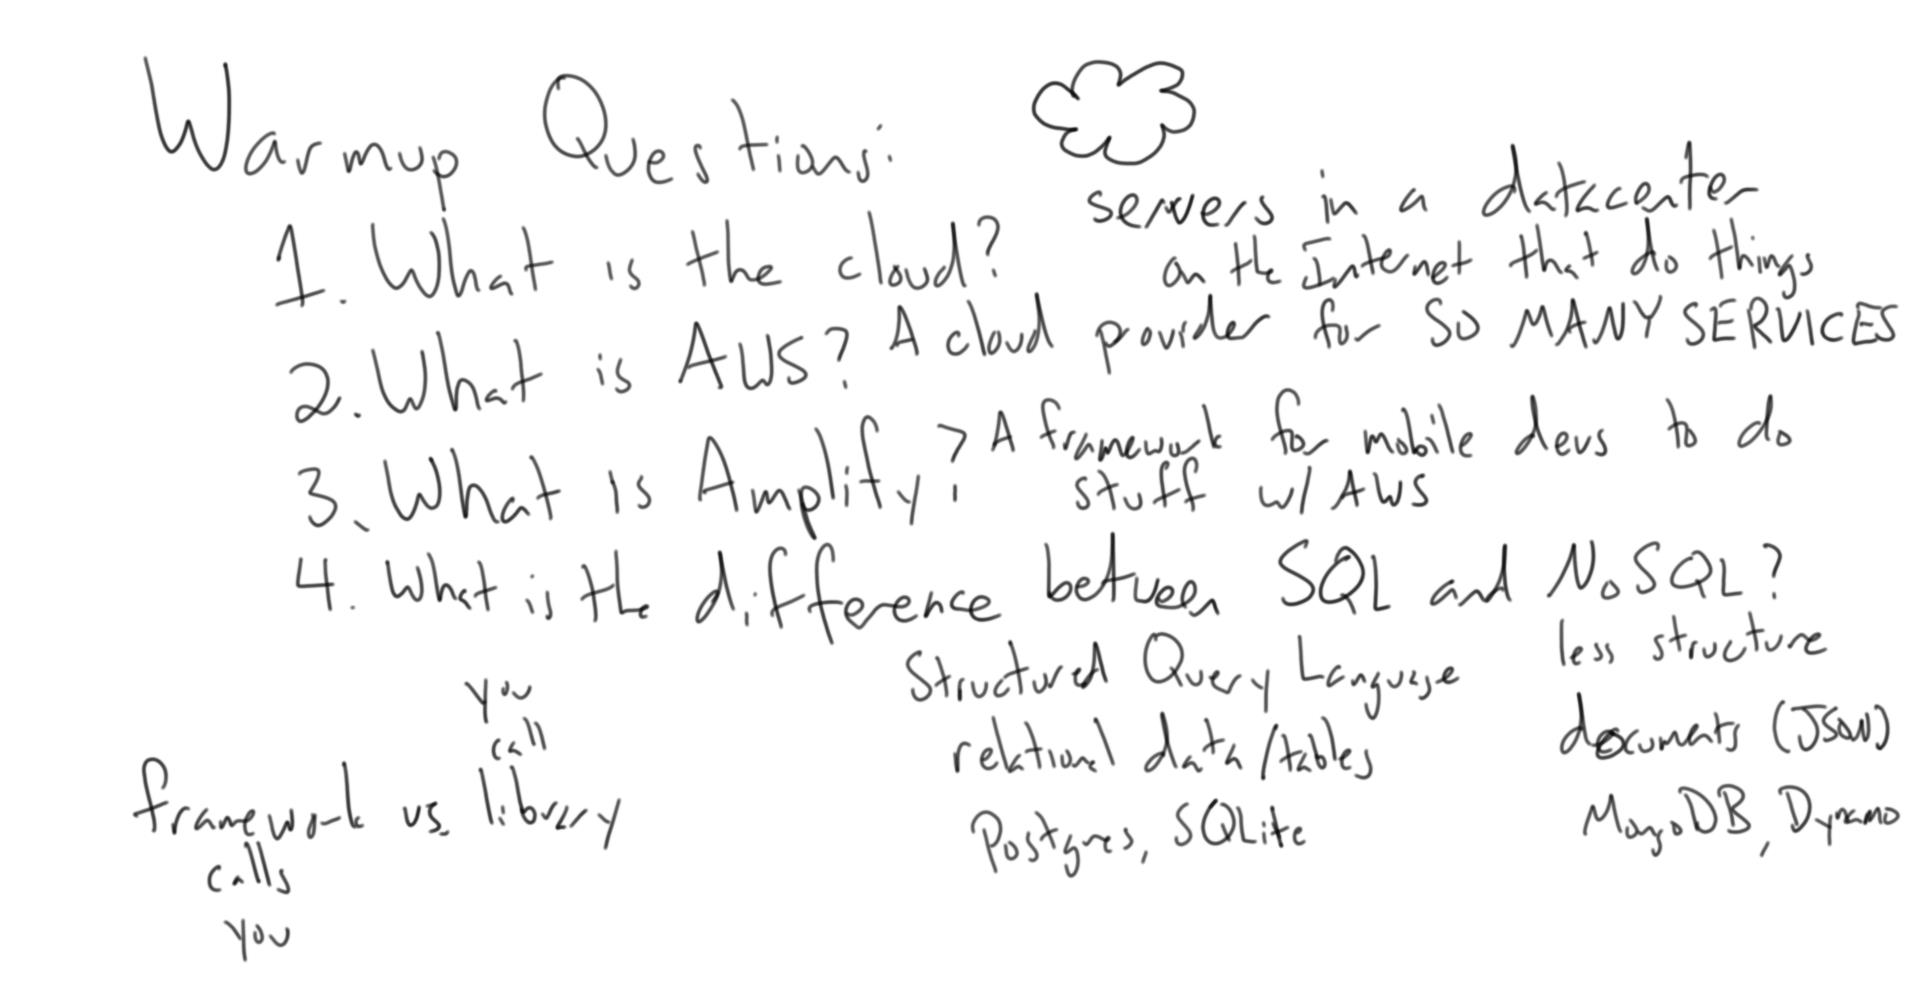 Warmup Questions:
1. What is the cloud? servers in a datacenter
on the Internet that do things
2. What is AWS? A cloud provider for SO MANY SERVICES
3. What is Amplify? A framework for mobile devs to do
stuff w/ AWS
4. What is the difference between SQL and NoSQL?
Structured Query Language
relational data/tables
Postgres, SQLite
less structure
documents (JSON)
MongoDB, Dynamo
you
call
framework vs. library
calls
you